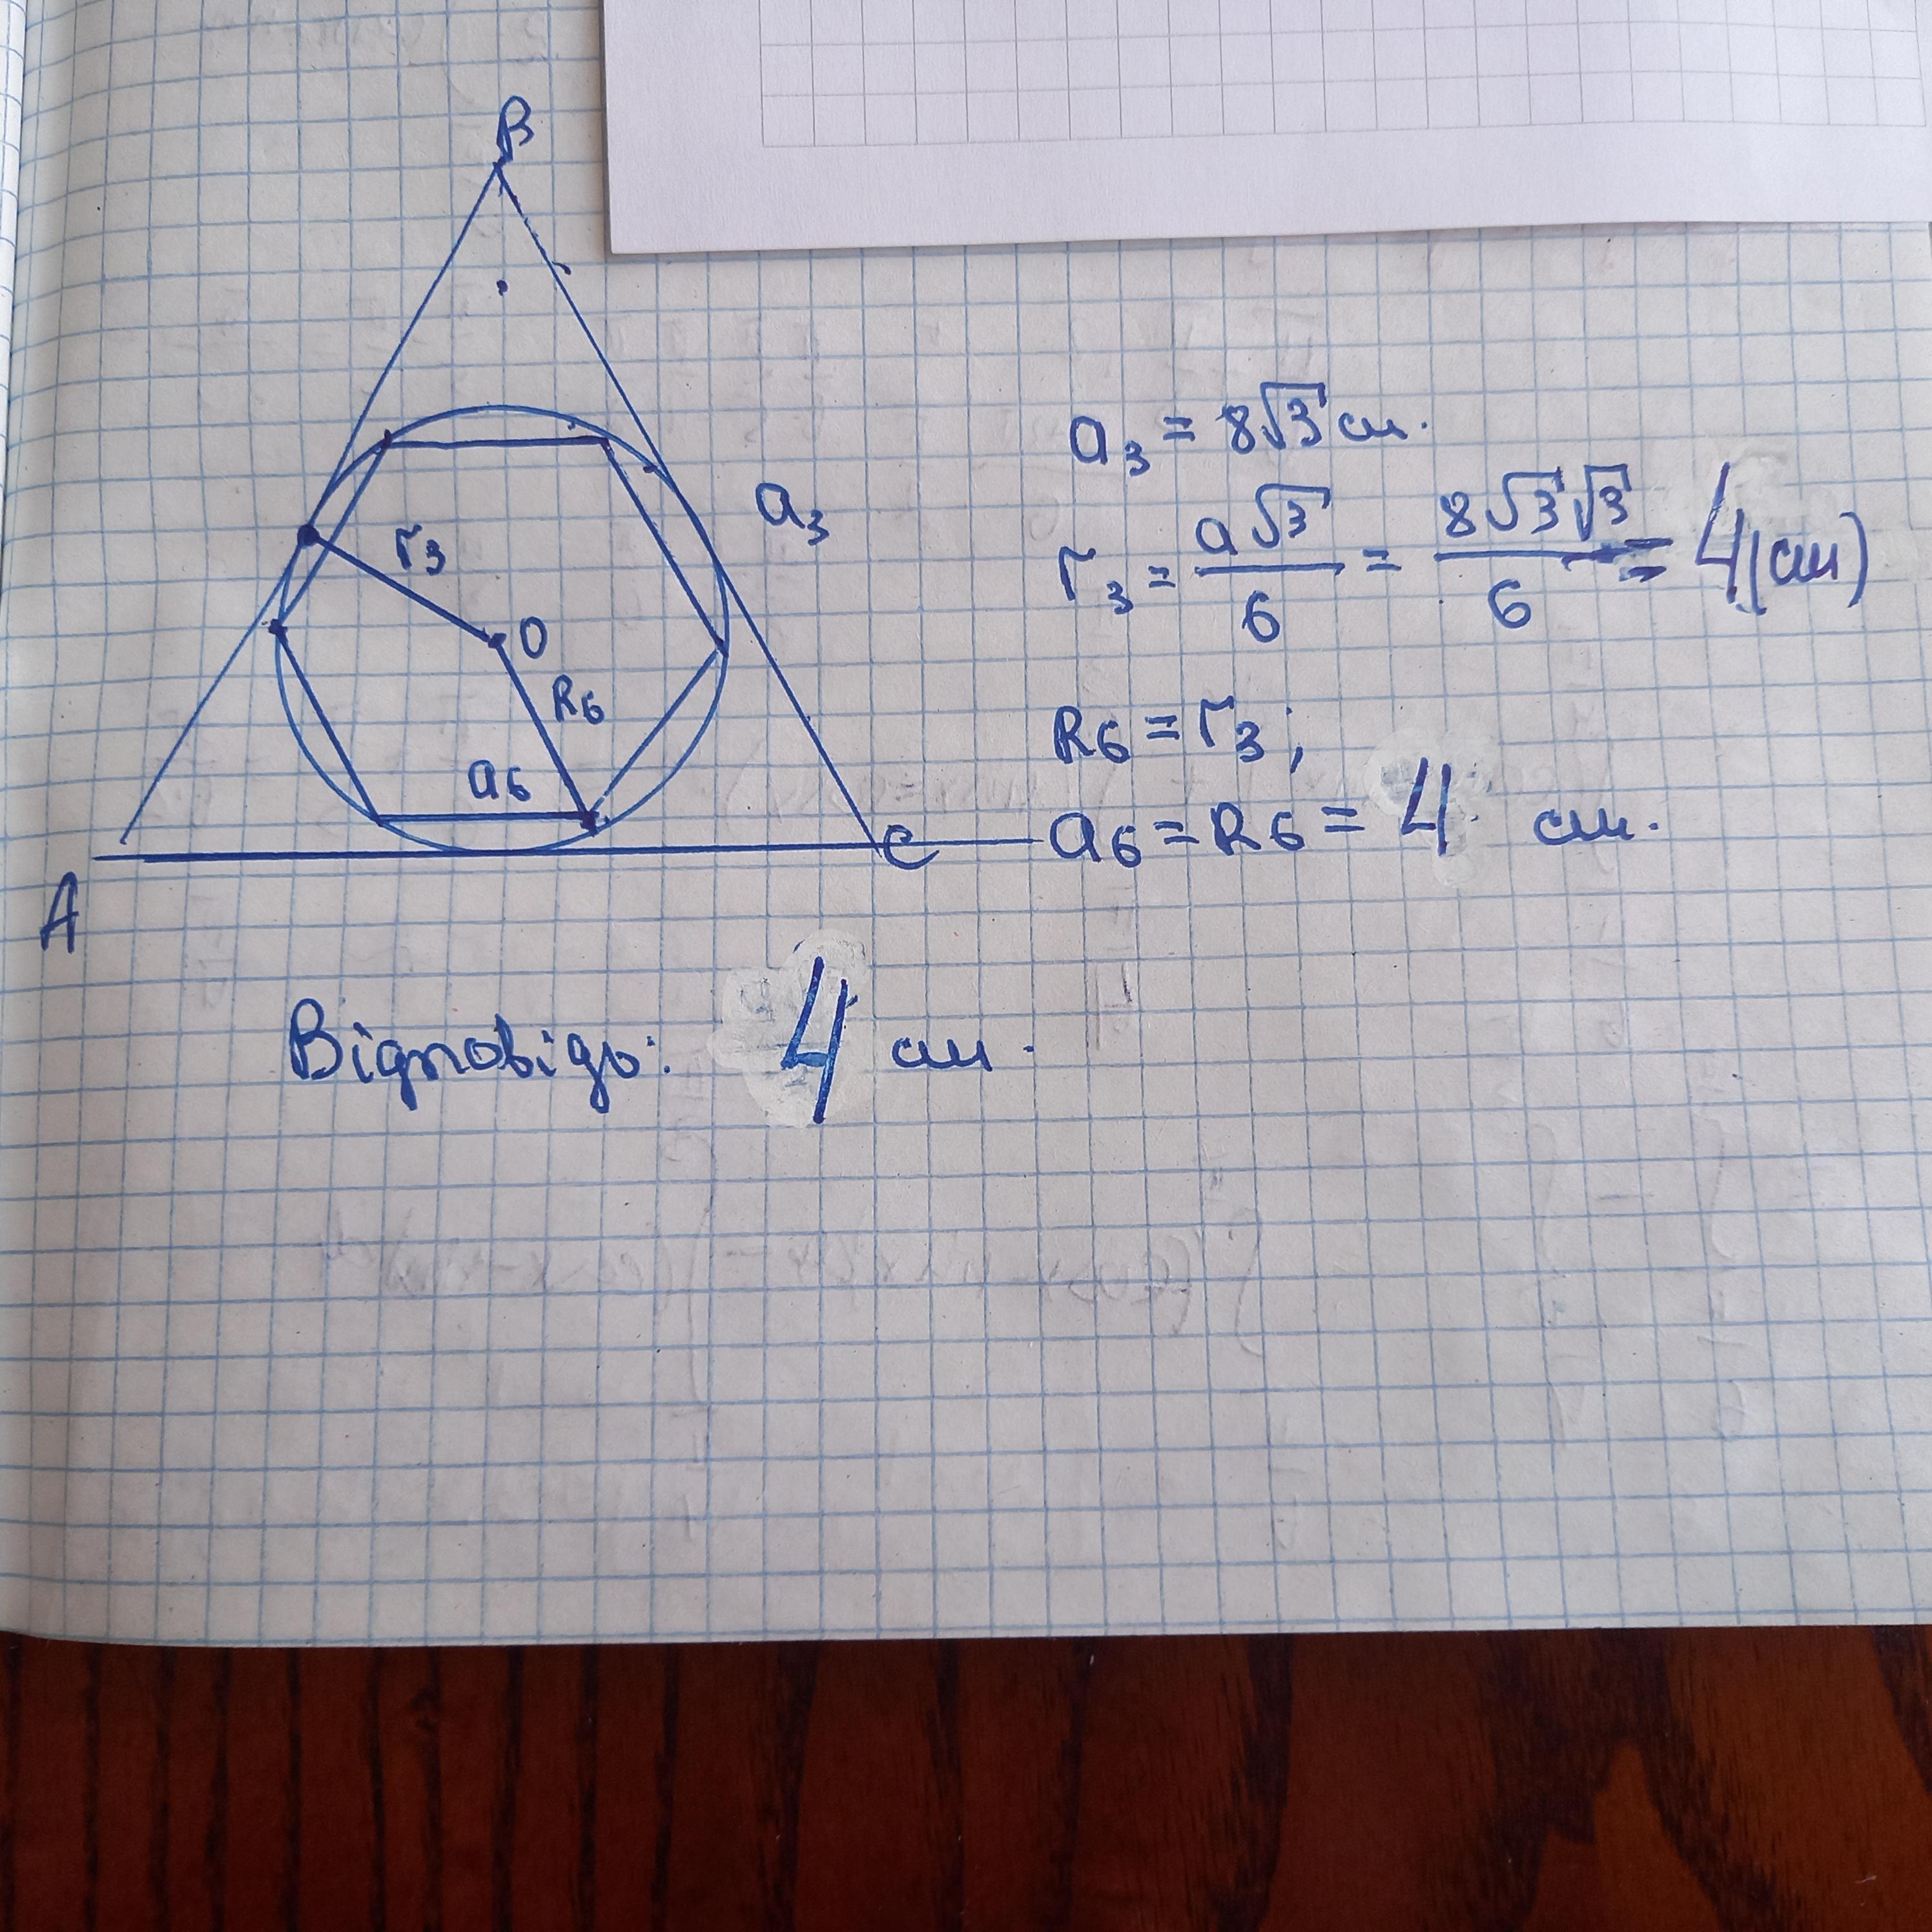 B
a₃
r₃
O
R₆
a₆
A
C
a₃ = 8√3 см.
r₃ = a√3/6 = 8√3√3/6 = 4(см)
R₆ = r₃;
a₆ = R₆ = 4 см.
Відповідь: 4 см.